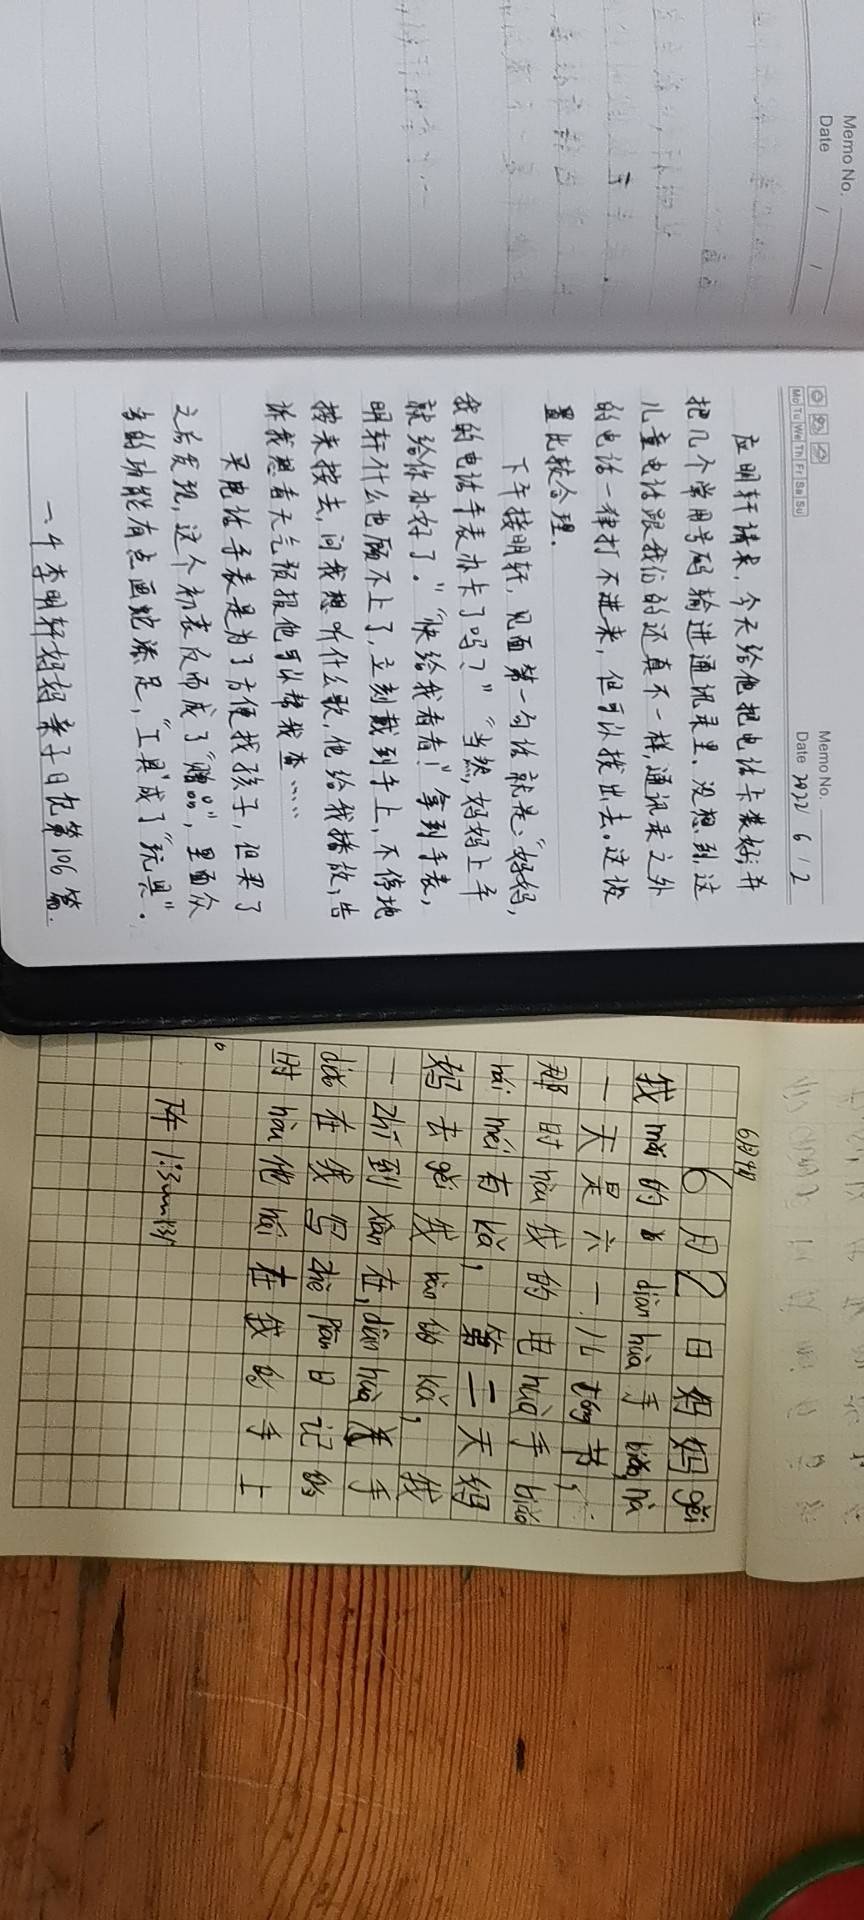 Memo No.
Date / /
Mo Tu We Th Fr Sa Su
Memo No.
Date 2022 6 / 2
应明轩请求，今天给他把电话卡装好，并
把几个常用号码输进通讯录里。没想到，这
儿童电话跟我们的还真不一样，通讯录之外
的电话一律打不进来，但可以拨出去。这设
置比较合理。
下午接明轩，见面第一句话就是：“妈妈，
我的电话手表办卡了吗？”“当然，妈妈上午
就给你办好了。”“快给我看看！”拿到手表，
明轩什么也顾不上了，立刻戴到手上，不停地
按来按去，问我想听什么歌，他给我播放，告
诉我想看天气预报他可以帮我查……
买电话手表是为了方便找孩子，但买了
之后发现，这个初衷反而成了“赠品”，里面众
多的功能有点画蛇添足，“工具”成了“玩具”。
一.4 李明轩妈妈亲子日记第106篇.
6月2日 妈妈gěi
我mǎi的 diàn huà 手biǎo, nà
一天是六一儿童节，
那时hòu我的电huà手biǎo
hái méi有kǎ，第二天妈
妈去gěi我bàn的kǎ，我
一zhí到xiàn在，diàn huà 手
dài在我写zhè piān日记的
时hòu他hái在我的手上
。